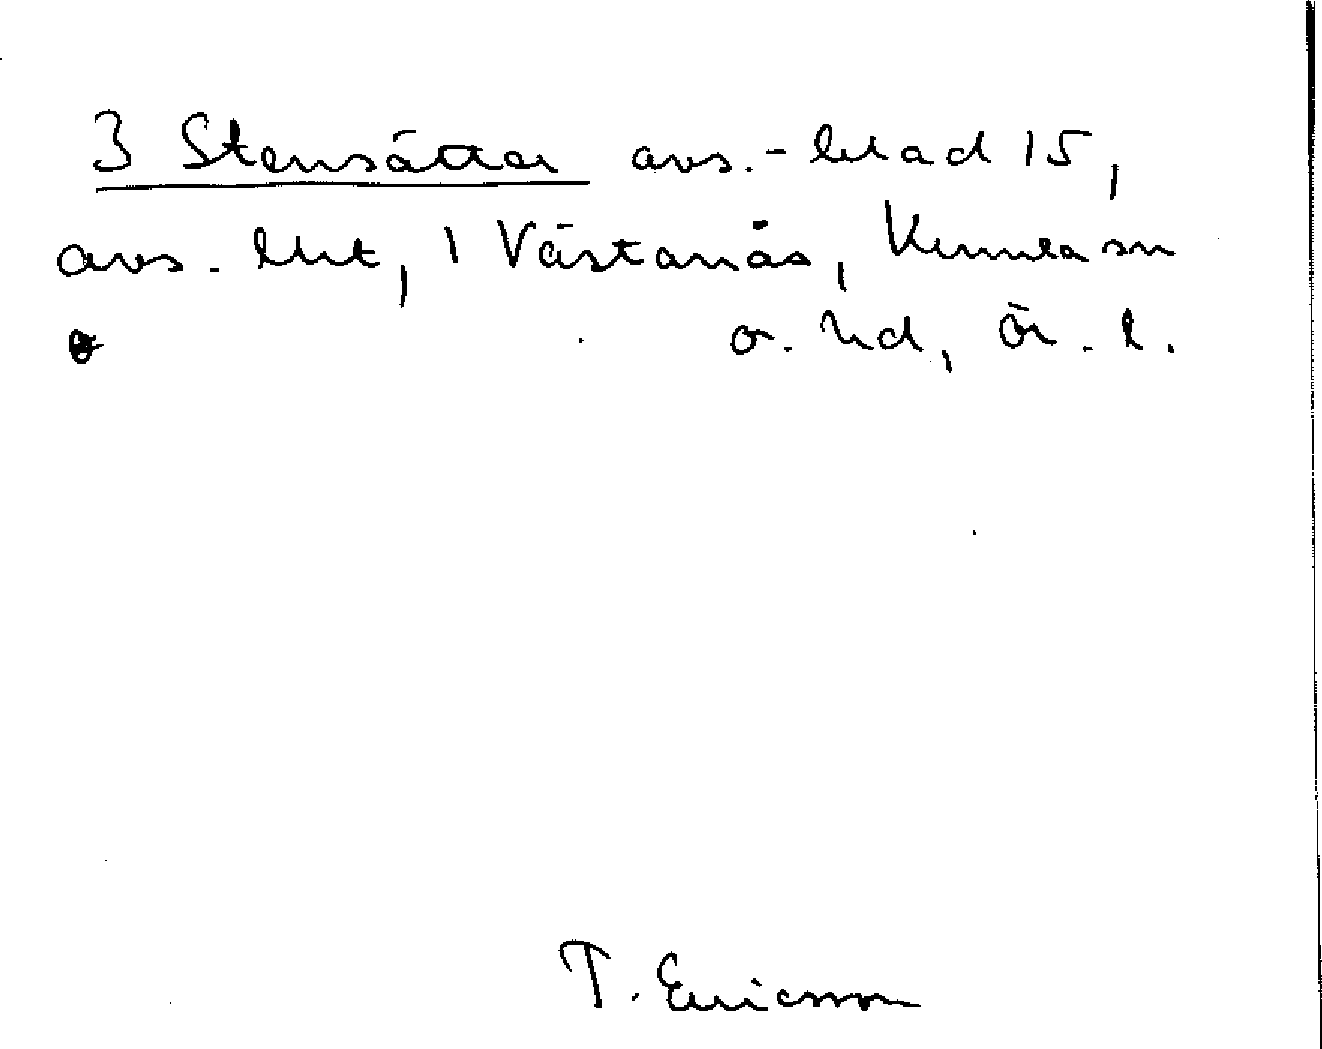 3 Stensättar avs.-blad 15,
avs. 1, Västanås, Kumla sn
o. hd, Ör. l.
T. Ericsson